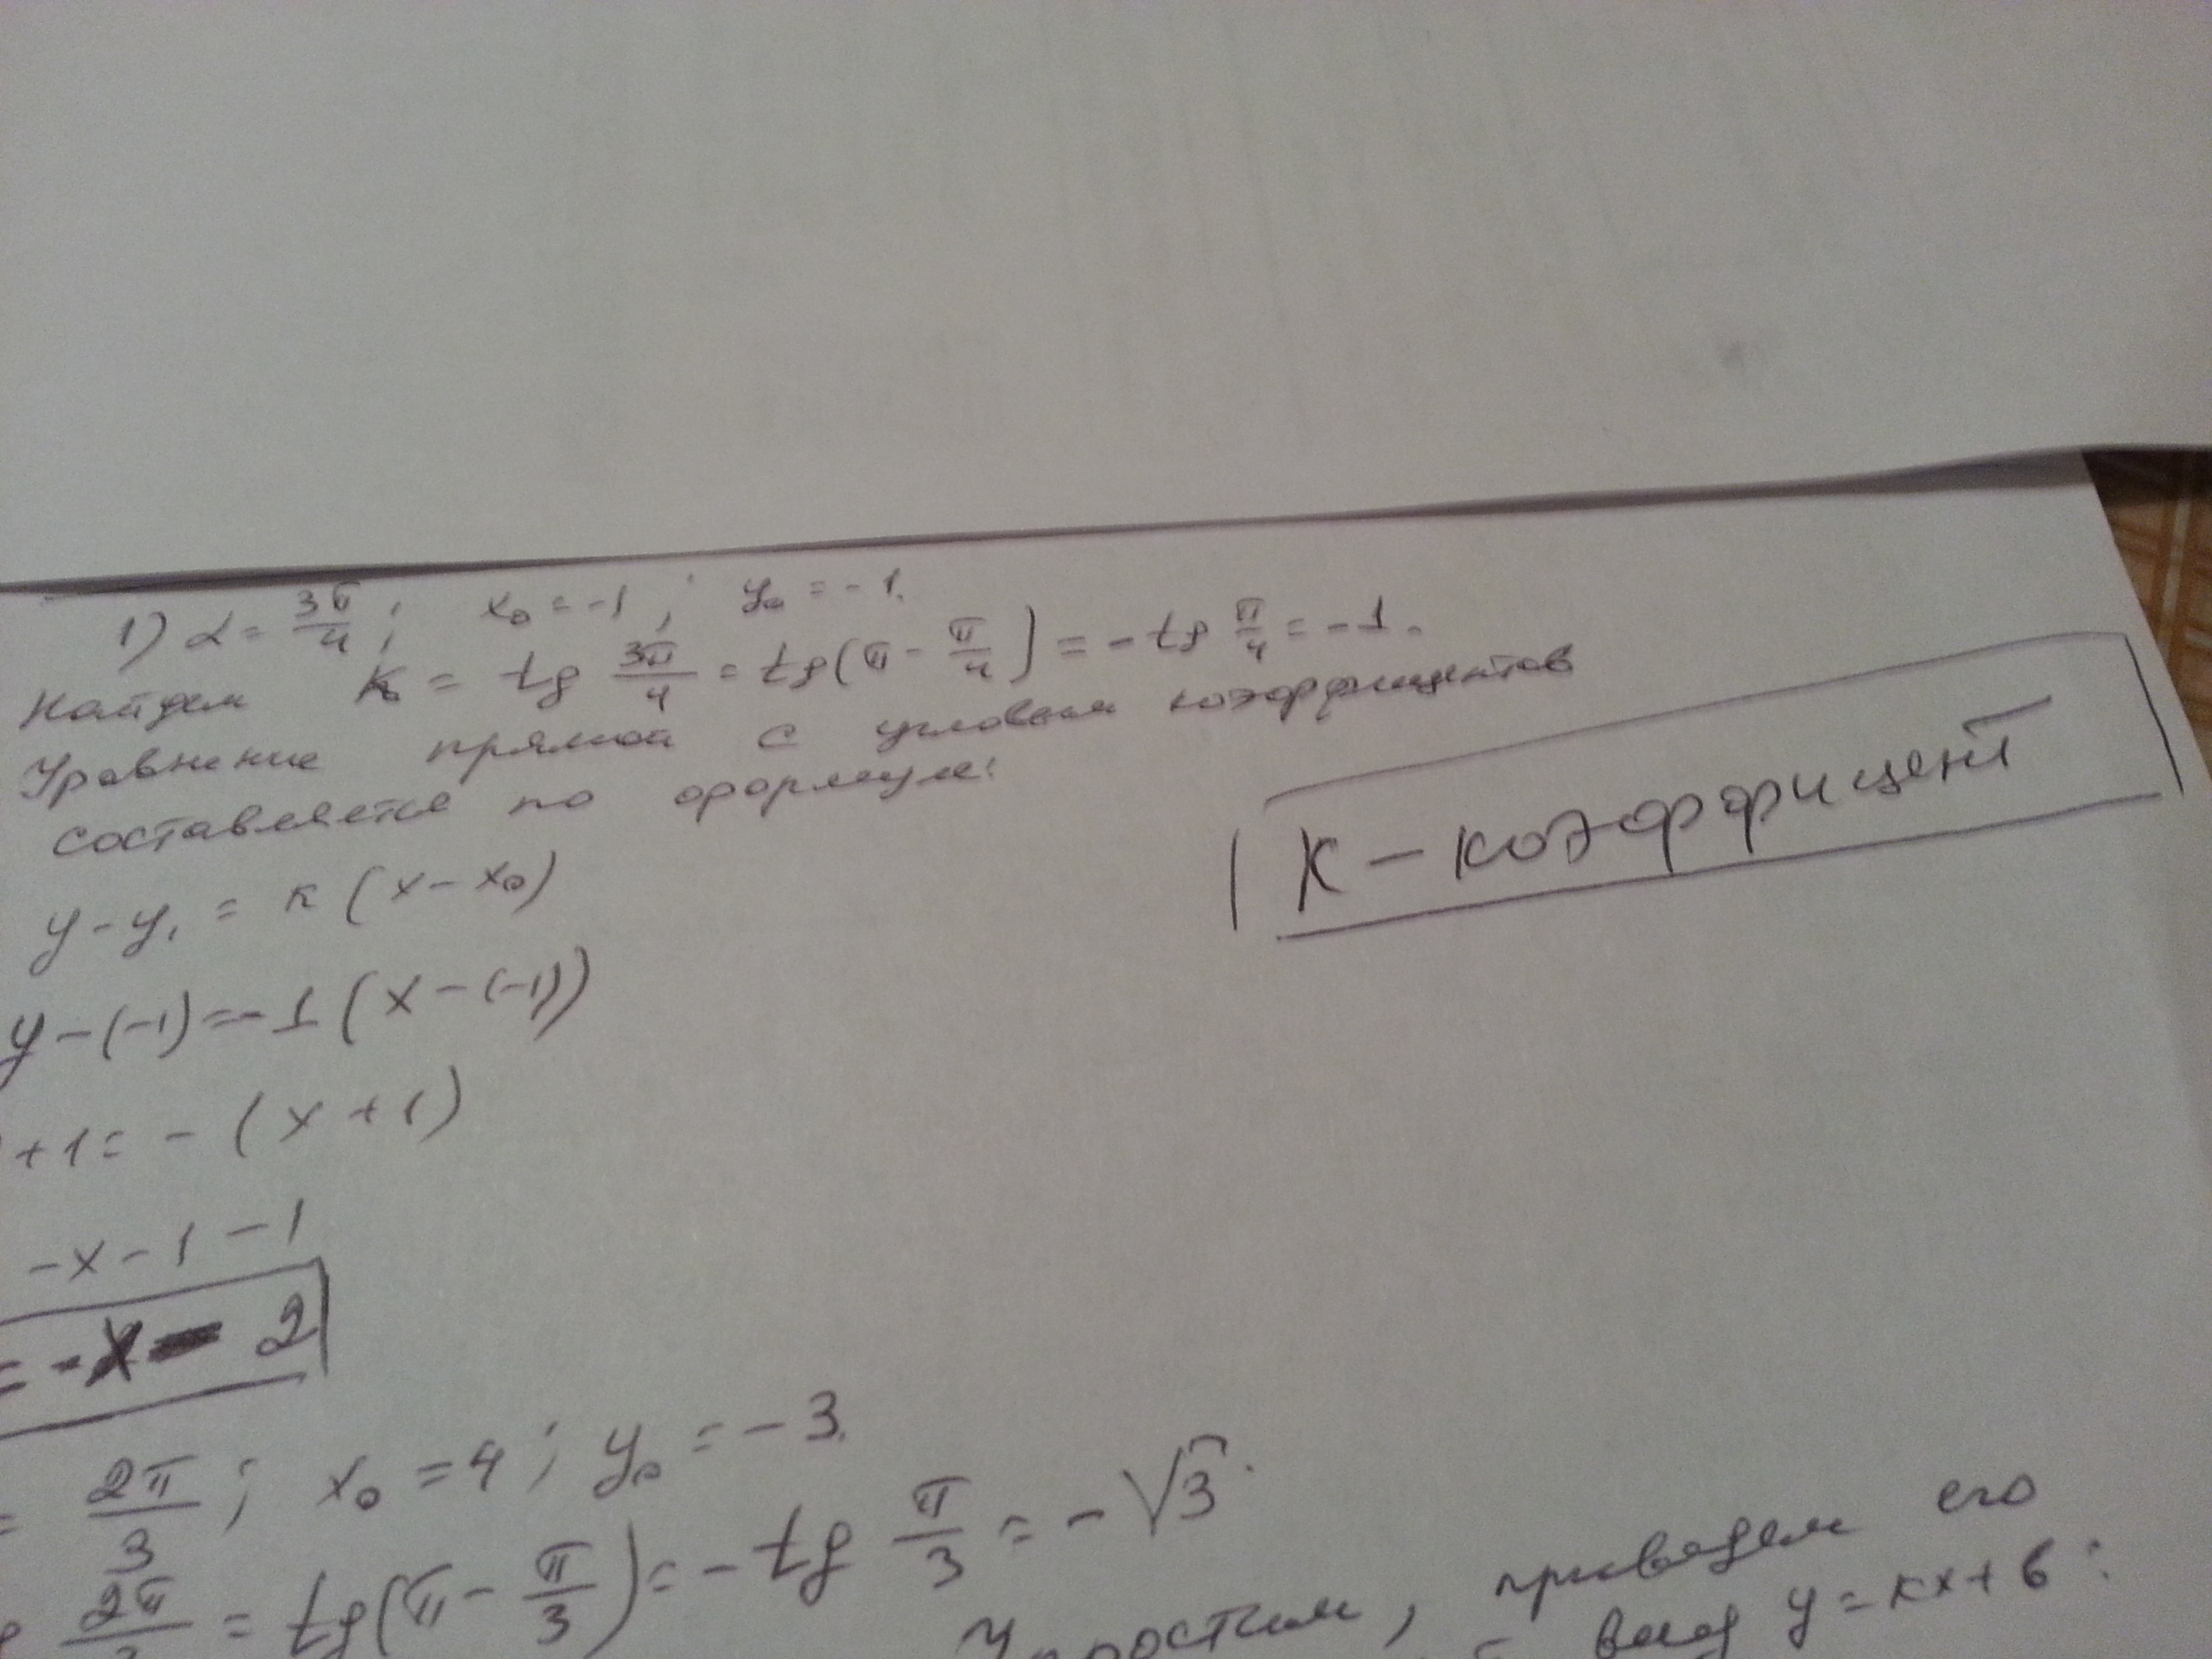 1) α = 3π/4; x₀ = -1; y₀ = -1.
Найдем k = tg 3π/4 = tg(π - π/4) = -tg π/4 = -1.
Уравнение прямой с угловым коэффициентов
составляется по формуле:
K - коэффициент
y - y₁ = k(x - x₀)
y - (-1) = -1(x - (-1))
+1 = -(x + 1)
-x - 1 - 1
= -x - 2
= 2π/3; x₀ = 4; y₀ = -3.
2π = tg(π - π/3) = -tg π/3 = -√3.
Упростим, приведем его
виду y = kx + b: